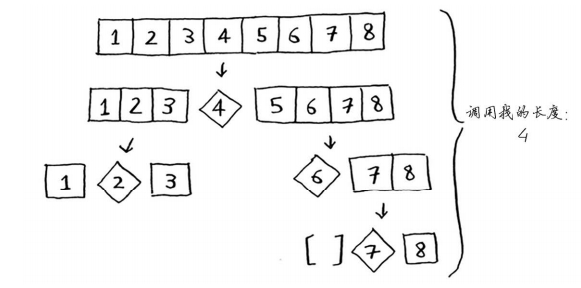 1 2 3 4 5 6 7 8
1 2 3 4 5 6 7 8
1 2 3 6 7 8
[ ] 7 8
调用我的长度:
4